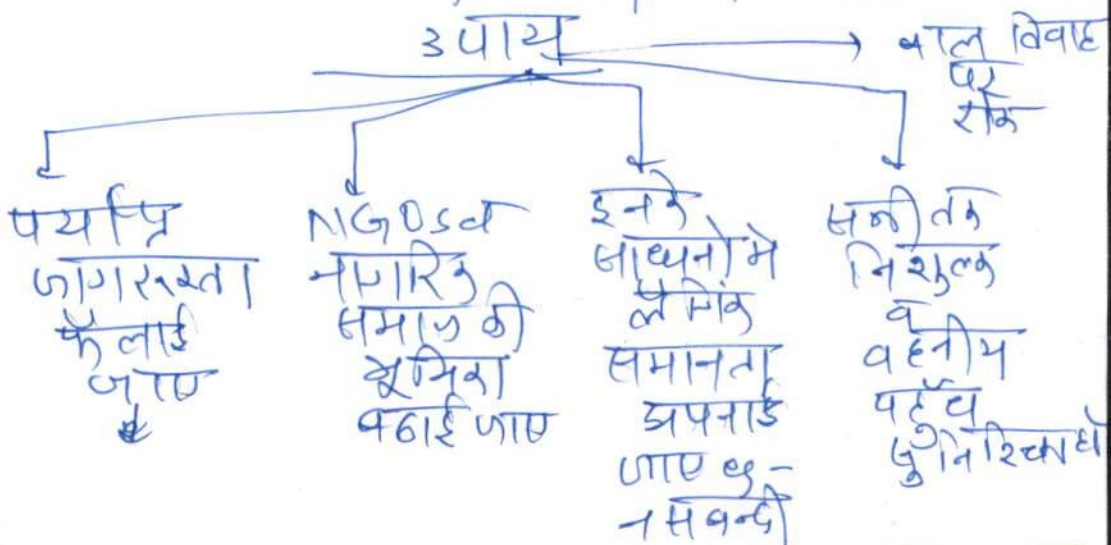 उपाय
बाल विवाह
पर
रोक
पर्याप्त
जागरूकता
फैलाई
जाए
NGOs व
नागरिक
समाज की
भूमिका
बढाई जाए
इनके
साधनों में
लैंगिक
समानता
अपनाई
जाए
नसबन्दी
सभी तक
निशुल्क
व
वहनीय
पहुँच
सुनिश्चित हो